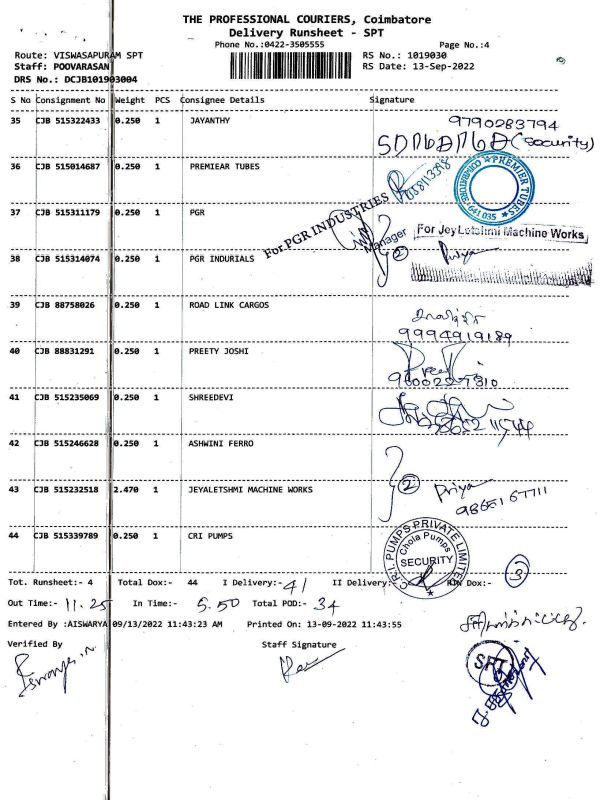 THE PROFESSIONAL COURIERS, Coimbatore
Delivery Runsheet - SPT
Phone No.:0422-3505555 Page No.:4
Route: VISWASAPURAM SPT RS No.: 1019030
Staff: POOVARASAN RS Date: 13-Sep-2022
DRS No.: DCJB101903004
S No Consignment No Weight PCS Consignee Details Signature
35 CJB 515322433 0.250 1 JAYANTHY 9790283794
(Security)
36 CJB 515014687 0.250 1 PREMIEAR TUBES
PREMIER TUBES COIMBATORE 641 035
37 CJB 515311179 0.250 1 PGR
For PGR INDUSTRIES
Manager
For JeyLetshmi Machine Works
38 CJB 515314074 0.250 1 PGR INDURIALS 2 Priya
39 CJB 88758026 0.250 1 ROAD LINK CARGOS
9994919189
40 CJB 88831291 0.250 1 PREETY JOSHI
41 CJB 515235069 0.250 1 SHREEDEVI
42 CJB 515246628 0.250 1 ASHWINI FERRO
43 CJB 515232518 2.470 1 JEYALETSHMI MACHINE WORKS 2 Priya
44 CJB 515339789 0.250 1 CRI PUMPS
C.R.I. PUMPS PRIVATE LIMITED
Chola Pumps
SECURITY
Tot. Runsheet:- 4 Total Dox:- 44 I Delivery:- 41 II Delivery:- RTN Dox:- 3
Out Time:- 11.25 In Time:- 5.50 Total POD:- 34
Entered By :AISWARYA 09/13/2022 11:43:23 AM Printed On: 13-09-2022 11:43:55
Verified By Staff Signature
SPT